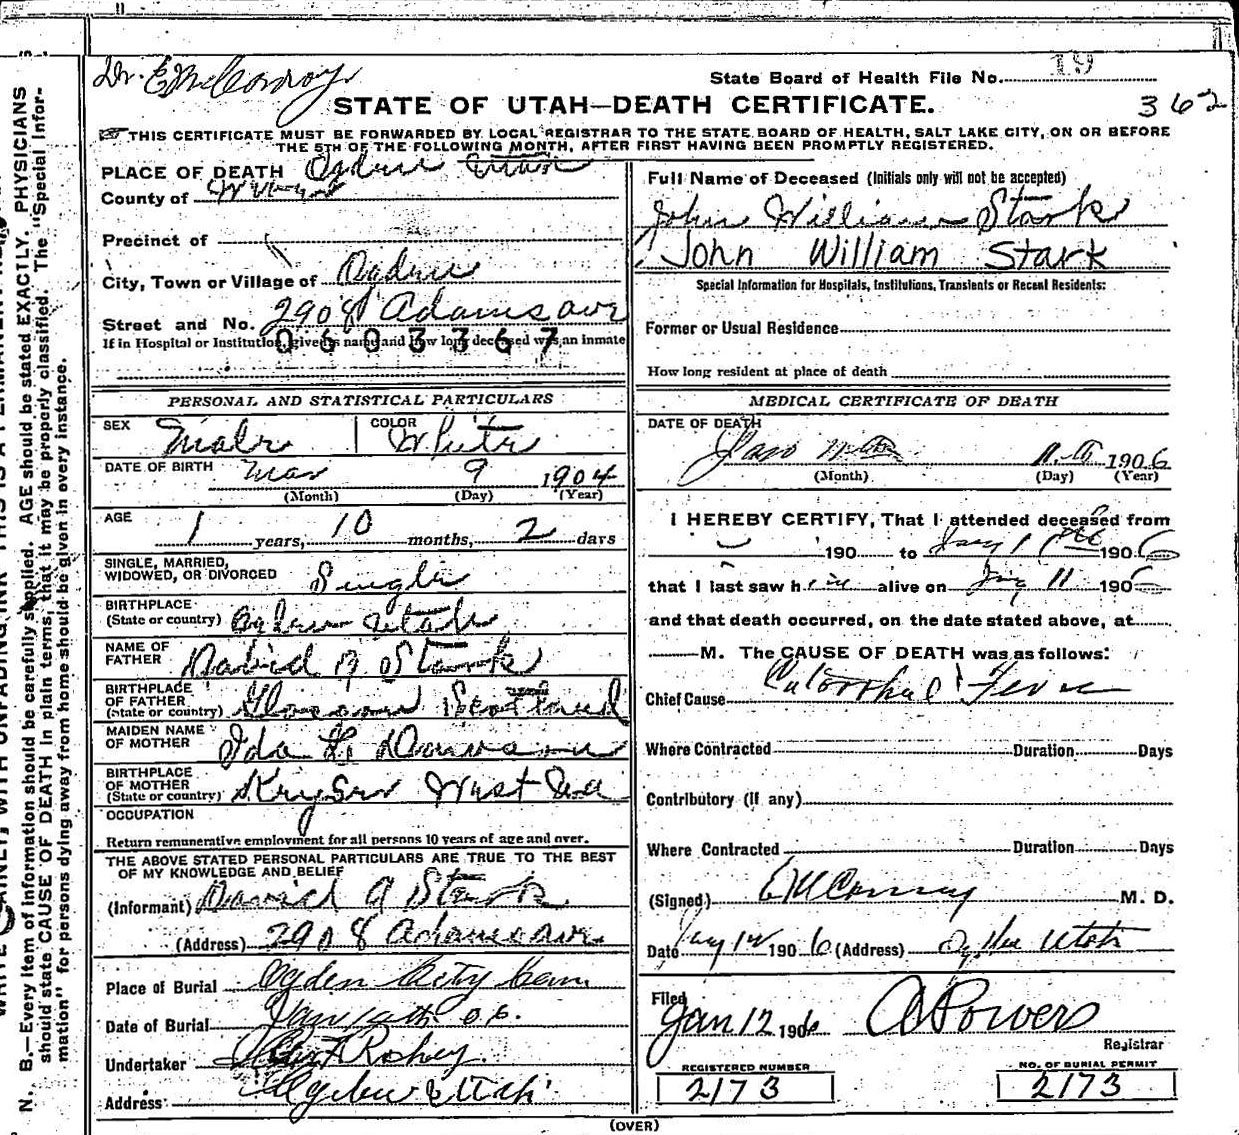 19
Dr. E M Conroy
State Board of Health File No.
STATE OF UTAH—DEATH CERTIFICATE.
362
THIS CERTIFICATE MUST BE FORWARDED BY LOCAL REGISTRAR TO THE STATE BOARD OF HEALTH, SALT LAKE CITY, ON OR BEFORE
THE 5TH OF THE FOLLOWING MONTH, AFTER FIRST HAVING BEEN PROMPTLY REGISTERED.
PLACE OF DEATH Ogden Utah
County of
Precinct of
City, Town or Village of Ogden
Street and No. 2908 Adams ave
0603367
If in Hospital or Institution, give its name and how long deceased was an inmate
Full Name of Deceased (Initials only will not be accepted)
John William Stark
John William Stark
Special Information for Hospitals, Institutions, Transients or Recent Residents:
Former or Usual Residence
How long resident at place of death
PERSONAL AND STATISTICAL PARTICULARS
SEX Male COLOR White
DATE OF BIRTH Mar 9 1904
(Month) (Day) (Year)
AGE 1 years, 10 months, 2 days
SINGLE, MARRIED,
WIDOWED, OR DIVORCED Single
BIRTHPLACE
(State or country) Ogden Utah
NAME OF
FATHER David A Stark
BIRTHPLACE
OF FATHER
(State or country) Scotland
MAIDEN NAME
OF MOTHER Ida L.
BIRTHPLACE
OF MOTHER
(State or country) Keyser West Va
OCCUPATION
Return remunerative employment for all persons 10 years of age and over.
THE ABOVE STATED PERSONAL PARTICULARS ARE TRUE TO THE BEST
OF MY KNOWLEDGE AND BELIEF
(Informant) David A Stark
(Address) 2908 Adams ave
Place of Burial Ogden City Cem
Date of Burial Jan 06.
Undertaker
Address Ogden Utah
MEDICAL CERTIFICATE OF DEATH
DATE OF DEATH
Jan 11 1906
(Month) (Day) (Year)
I HEREBY CERTIFY, That I attended deceased from
190 to Jany 11 1906
that I last saw him alive on Jany 11 1906
and that death occurred, on the date stated above, at
M. The CAUSE OF DEATH was as follows:
Chief Cause Catarrhal Fever
Where Contracted Duration Days
Contributory (If any)
Where Contracted Duration Days
(Signed) E M Conroy M. D.
Date Jany 12 1906 (Address) Ogden Utah
Filed
Jan 12 1906 A Powers
Registrar
REGISTERED NUMBER
2173
NO. OF BURIAL PERMIT
2173
(OVER)
N. B.—Every item of information should be carefully supplied. AGE should be stated EXACTLY. PHYSICIANS
should state CAUSE OF DEATH in plain terms, that it may be properly classified. The "Special Infor-
mation" for persons dying away from home should be given in every instance.